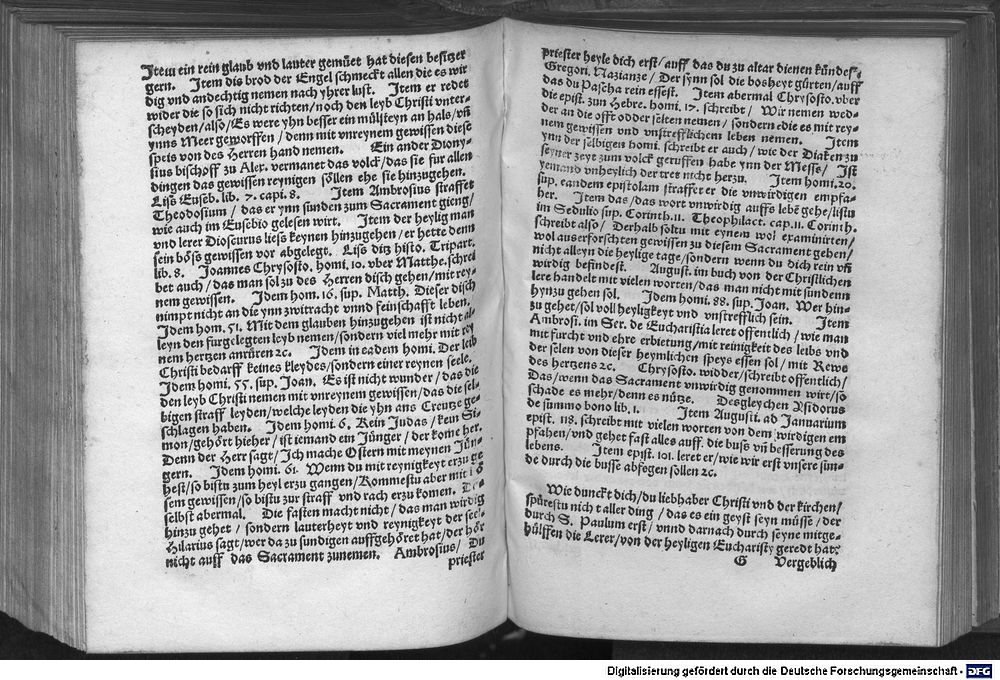 Item ein rein glaub vnd lauter gemüet hat diesen besitzer
gern. Item dis brod der Engel schmeckt allen die es wir
dig vnd andechtig nemen nach yhrer lust. Item er redet
wider die so sich nicht richten/noch den leyb Christi vnter-
scheyden/also/Es were yhn besser ein mülsteyn an hals/vñ
ynns Meer geworffen/denn mit vnreynem gewissen diese
speis von des Herren hand nemen. Ein ander Diony-
sius bischoff zu Alex. vermanet das volck/das sie fur allen
dingen das gewissen reynigen söllen ehe sie hinzugehen.
Lis Euseb. lib. 7. capi. 8. Item Ambrosius straffet
Theodosium/das er ynn sunden zum Sacrament gieng/
wie auch im Eusebio gelesen wirt. Item der heylig man
vnd lerer Dioscurus liess keynen hinzugehen/er hette denn
sein böss gewissen vor abgelegt. Liss ditz histo. Tripart.
lib. 8. Joannes Chrysosto. homi. 10. vber Matthe. schrei
bet auch/das man sol zu des Herren disch gehen/mit rey-
nem gewissen. Idem hom. 16. sup. Matth. Dieser disch
nimpt nicht an die ynn zwitracht vnnd feinschafft leben.
Idem hom. 51. Mit dem glauben hinzugehen ist nicht al-
leyn den furgelegten leyb nemen/sondern viel mehr mit rey
nem hertzen anrüren ꝛc. Idem in eadem homi. Der leib
Christi bedarff keines kleydes/sondern einer reynen seele.
Idem homi. 55. sup. Joan. Es ist nicht wunder/das die
den leyb Christi nemen mit vnreynem gewissen/das die sel-
bigen straff leyden/welche leyden die yhn ans Creutze ge-
schlagen haben. Idem homi. 6. Kein Judas/kein Si-
mon/gehört hieher/ist iemand ein Jünger/der kome her.
Denn der Herr sagt/Ich mache Ostern mit meynen Jün-
gern. Idem homi. 61. Wenn du mit reynigkeyt erzu ge
hest/so bistu zum heyl erzu gangen/Kommestu aber mit bö
sem gewissen/so bistu zur straff vnd rach erzu komen. Der
selbst abermal. Die fasten macht nicht/das man wirdig
hinzu gehet/sondern lauterheyt vnd reynigkeyt der seel.
Hilarius sagt/wer da zu sundigen auffgehöret hat/der hör
nicht auff das Sacrament zunemen. Ambrosius/Du
priester
priester heyle dich erst/auff das du zu altar dienen kündest.
Gregori. Nazianze/Der synn sol die bosheyt gürten/auff
das du Pascha rein essest. Item abermal Chrysosto. vber
die epist. zun Hebre. homi. 17. schreibt/Wir nemen wed-
der an die offt odder selten nemen/sondern edie es mit rey-
nem gewissen vnd vnstrefflichem leben nemen. Item
ynn der selbigen homi. schreibt er auch/wie der Diaken zu
seyner zeyt zum volck geruffen habe ynn der Messe/Ist
yemand vnheylich der tret nicht herzu. Item homi. 20.
sup. eandem epistolam straffet er die vnwirdigen empfa-
her. Item das/das wort vnwirdig auffs lebē gehe/listu
im Sedulio sup. Corinth. 11. Theophilact. cap. 11. Corinth.
schreibt also/Derhalb soltu mit eynem wol examinirten/
wol auserforschten gewissen zu diesem Sacrament gehen/
nicht alleyn die heylige tage/sondern wenn du dich rein vñ
wirdig befindest. August. im buch von der Christlichen
lere handelt mit vielen worten/das man nicht mit sundenn
hynzu gehen sol. Idem homi. 88. sup. Joan. Wer hin-
zu gehet/sol voll heyligkeyt vnd vnstrefflich sein. Item
Ambrosi. im Ser. de Eucharistia leret offentlich/wie man
mit furcht vnd ehre erbietung/mit reinigkeit des leibs vnd
der selen von dieser heymlichen speys essen sol/mit Rewe
des hertzens ꝛc. Chrysosto. widder/schreibt offentlich/
Das/wenn das Sacrament vnwirdig genommen wirt/so
schade es mehr/denn es nütze. Desgleychen Ysidorus
de summo bono lib. 1. Item Augusti. ad Januarium
epist. 118. schreibt mit vielen worten von dem wirdigen em
pfahen/vnd gehet fast alles auff. die buss vñ besserung des
lebens. Item epist. 101. leret er/wie wir erst vnsere sun-
de durch die busse abfegen sollen ꝛc.
Wie dunckt dich/du liebhaber Christi vnd der kirchen/
spürestu nicht aller ding/das es ein geyst seyn müsse/der
durch S. Paulum erst/vnnd darnach durch seyne mitge-
hülffen die Lerer/von der heyligen Eucharisty geredt hat?
G Vergeblich
Digitalisierung gefördert durch die Deutsche Forschungsgemeinschaft - DFG